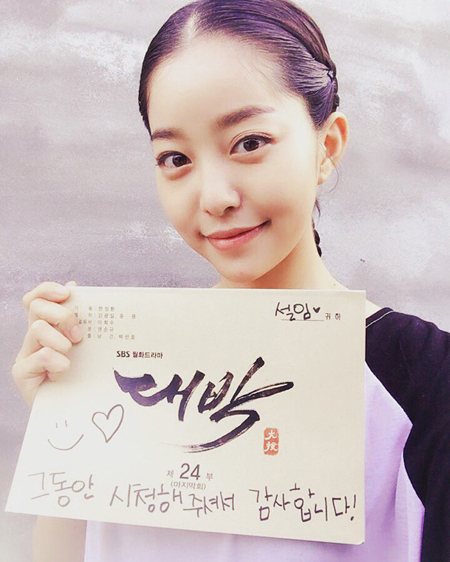 설임♥ 귀하
SBS 월화드라마
대박
大搏
제 24 부
(마지막회)
그동안 시청해주셔서 감사합니다!